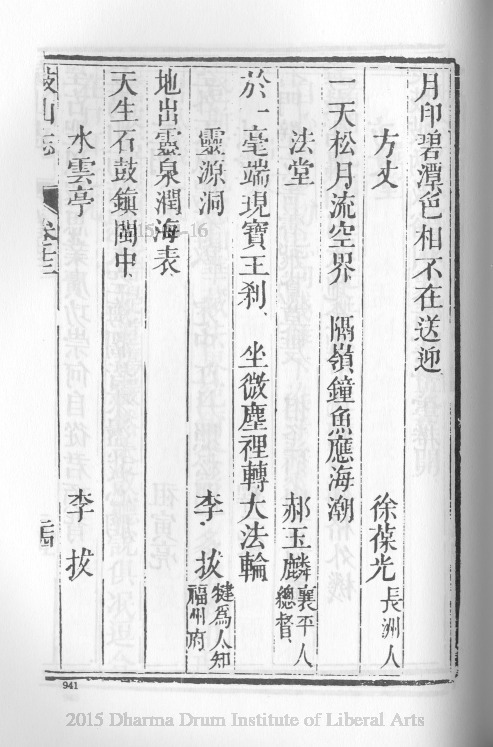 月印碧潭色相不在送迎
方丈 徐葆光 長洲人
一天松月流空界 隔嶺鐘魚應海潮
法堂 郝玉麟 襄平人總督
於一毫端現寶王刹 坐微塵裡轉大法輪
靈源洞 李拔 犍為人知福州府
地出靈泉潤海表
天生石鼓鎮閩中
水雲亭 李拔
鼓山志 卷十三
941
2015 Dharma Drum Institute of Liberal Arts